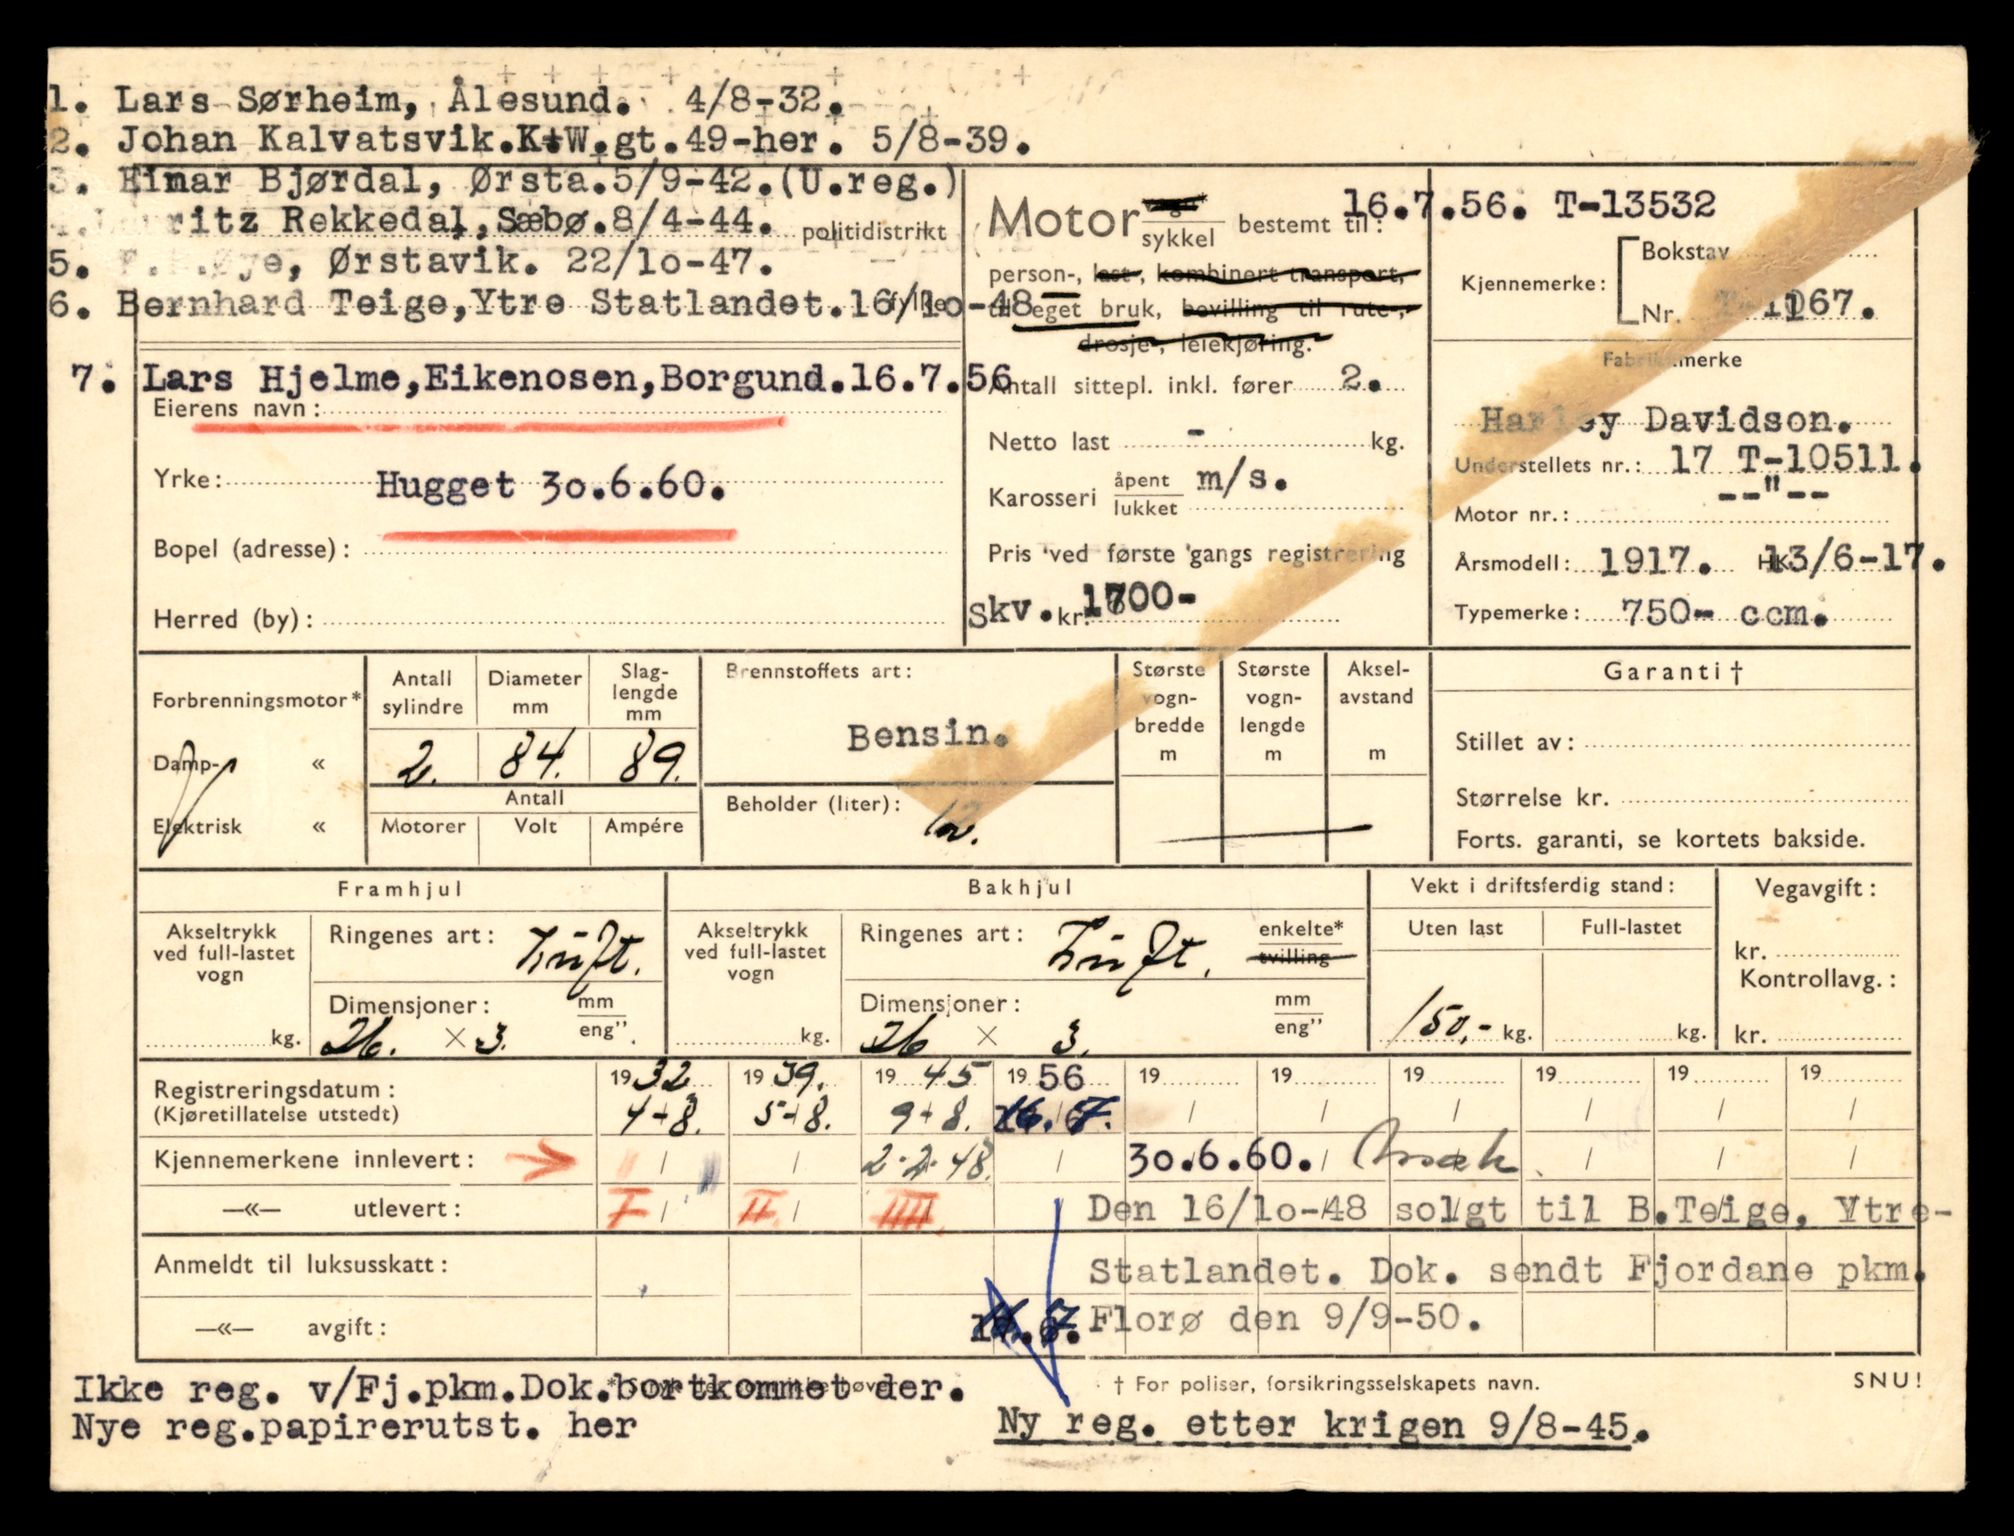 1. Lars Sørheim, Ålesund. 4/8-32.
2. Johan Kalvatsvik.K+W.gt.49-her. 5/8-39.
3. Einar Bjørdal, Ørsta.5/9-42.(U.reg.)
ritz Rekkedal, Sæbø.8/4-44. politidistrikt
5. Øye, Ørstavik. 22/10-47.
6. Bernhard Teige, Ytre Statlandet.16/10-48
7. Lars Hjelme, Eikenosen, Borgund.16.7.56
Eierens navn:
Yrke: Hugget 30.6.60.
Bopel (adresse):
Herred (by):
Motor sykkel bestemt til:
person-, last-, kombinert transport,
til eget bruk, bevilling til rute-,
drosje-, leiekjøring.
Antall sittepl. inkl. fører 2.
Netto last - kg.
Karosseri åpent lukket m/s.
Pris ved første gangs registrering
Skv. kr. 1700-
16.7.56. T-13532
Kjennemerke: Bokstav
Nr. 67.
Fabrikkmerke
Harley Davidson.
Understellets nr.: 17 T-10511.
Motor nr.: --"--
Årsmodell: 1917. HK 13/6-17.
Typemerke: 750- ccm.
Forbrenningsmotor*
Damp- «
Elektrisk «
Antall sylindre 2.
Diameter mm 84.
Slag-lengde mm 89.
Antall
Motorer Volt Ampére
Brennstoffets art:
Bensin.
Beholder (liter): 12.
Største vogn-bredde m
Største vogn-lengde m
Aksel-avstand m
Garanti †
Stillet av:
Størrelse kr.
Forts. garanti, se kortets bakside.
Framhjul
Akseltrykk ved full-lastet vogn kg.
Ringenes art: Luft.
Dimensjoner: mm eng"
26. × 3.
Bakhjul
Akseltrykk ved full-lastet vogn kg.
Ringenes art: Luft. enkelte* tvilling
Dimensjoner: mm eng"
26 × 3.
Vekt i driftsferdig stand:
Uten last Full-lastet
150,- kg. kg.
Vegavgift:
kr.
Kontrollavg.:
kr.
Registreringsdatum: 1932 1939. 1945 1956 19 19 19 19 19 19
(Kjøretillatelse utstedt) 4-8. 5-8. 9-8. 16.7.
Kjennemerkene innlevert: 2.2.48. 30.6.60.
—«— utlevert: I II IIII Den 16/10-48 solgt til B.Teige, Ytre-
Anmeldt til luksusskatt: Statlandet. Dok. sendt Fjordane pkm.
—«— avgift: Florø den 9/9-50.
Ikke reg. v/Fj.pkm.Dok.bortkommet der.
† For poliser, forsikringsselskapets navn. SNU!
Nye reg.papirerutst. her
Ny reg. etter krigen 9/8-45.